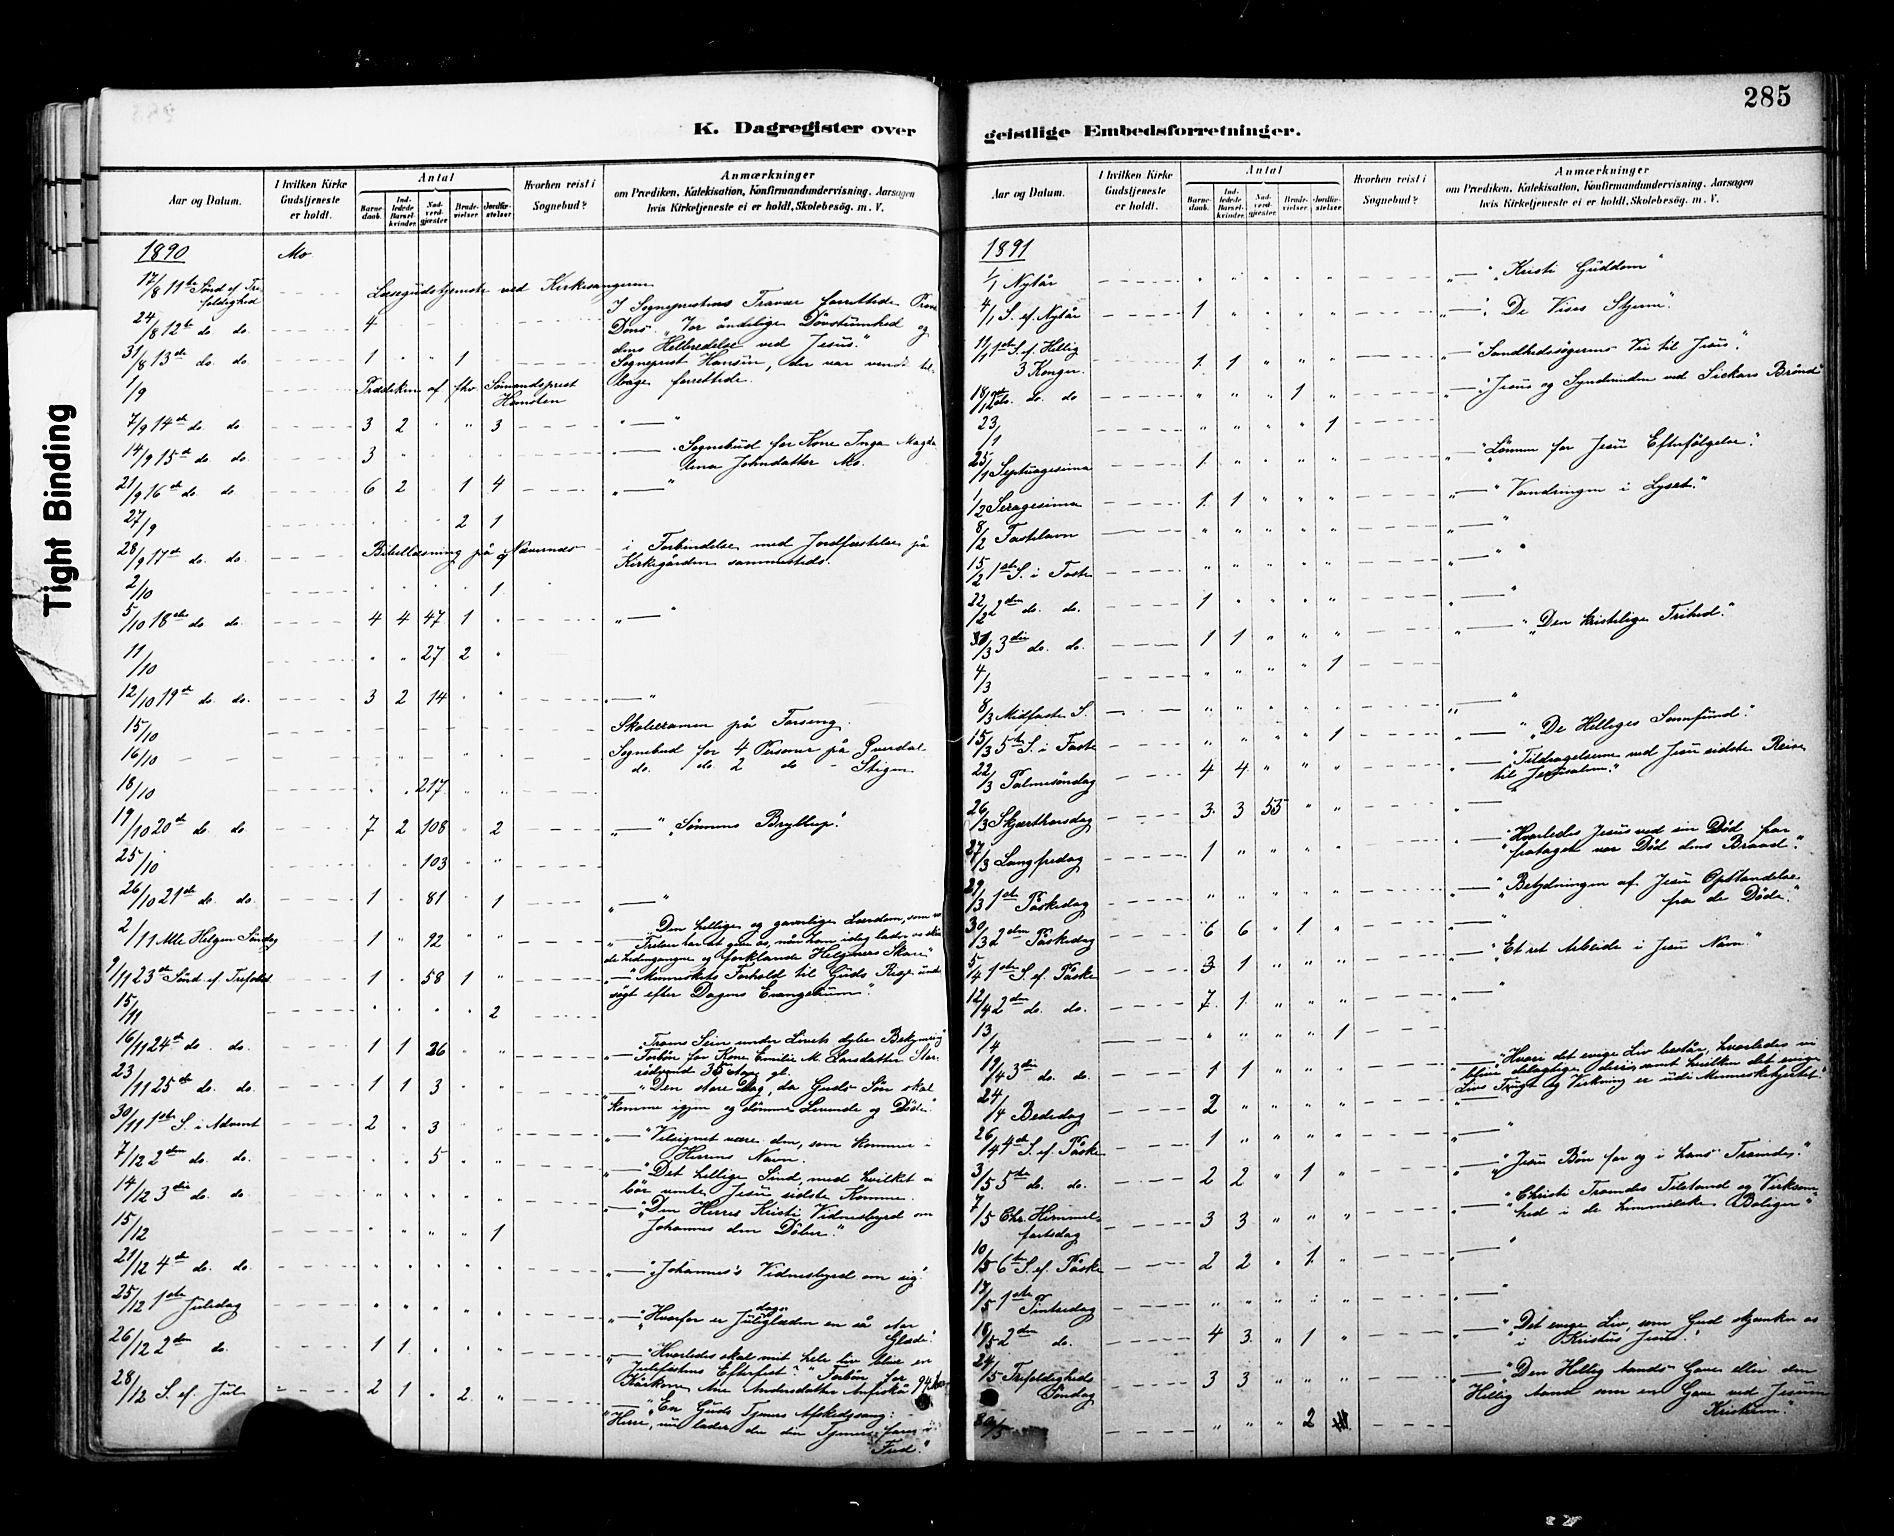 285
K. Dagregister over geistlige Embedsforretninger.
Tight Binding
Aar og Datum. I hvilken Kirke Gudstjeneste er holdt. Antal Barnedaab. Indledede Barselkvinder. Nadverdgjester Brudevielser Jordfæstelser Hvorhen reist i Sognebud? Anmærkninger om Prædiken, Katekisation, Konfirmandundervisning, Aarsagen hvis Kirketjeneste ei er holdt, Skolebesøg. m. V.
1890 Mo
17/8 11te Sønd ef. Trefoldighed Læsegudstjeneste ved Kirkesangeren
24/8 12te do do. 4 I Sogneprestens Fravær forrettede
"Vor åndelige Døvstumhed og
dens Helbredelse ved Jesus."
31/8 13de do. do. 1 " " 1 Sogneprest Hansen, der var vendt til-
bage, forrettede.
1/9 Prædiken af fhv. Sømandsprest
7/9 14de do. do 3 2 " " 3 " — "
14/9 15de do. do. 3 Sognebud for Kone Inga Magda
lena Johndatter Mo.
21/9 16de do. do. 6 2 1 4 " — "
27/9 2 1
28/9 17de do. do. Bibellæsning på Nævernes i Forbindelse med Jordfæstelse på
Kirkegården sammesteds.
2/10 1
5/10 18de do. do. 4 4 47 1 " " — "
11/10 " " 27 2 "
12/10 19de do. do. 3 2 14 " " — "
15/10 Skoleexamen på Forseng.
16/10 Sognebud for 4 Personer på
do. do. 2 do - Stigen
18/10 " " 217 " "
19/10 20de do. do. 7 2 108 2 " — " "Sønnens Bryllup."
25/10 103 " "
26/10 21de do. do. 1 81 1 " — "
2/11 Alle Helgen Søndag 1 " 92 " " "Den hellige og gavnlige Lærdom, som
9/11 23de Sønd ef. Trefoldh. 1 58 1 " — "Menneskets Forhold til Guds Rige, under
søgt efter Dagens Evangelium."
15/11 " " " " 2
16/11 24de do. do. 1 1 26 " " — "Troens Seir under Livets dybe Bekymring
Forbøn for Kone Emilie M. Larsdatter
23/11 25de do. do. 1 1 3 " " "Den store Dag, da Guds Søn skal
komme igjen og dømme Levende og Døde."
30/11 1ste S. i Advent 2 " 3 " — "Velsignet være den, som kommer i
Herrens Navn.
7/12 2den do. do. " " 5 " " — "Det hellige Sind, med hvilket vi
bør vente Jesu sidste Komme.
14/12 3die do. do. " " " " " — "Den Herres Kristi Vidnesbyrd om
Johannes den Døber."
15/12 " " " " 1
21/12 4de do. do. " " " " " " — "Johannes's Vidnesbyrd om sig."
25/12 1ste Juledag " " " " " " — "Hvorfor er Juledagsglæden en så stor
Glæde."
26/12 2den do. 1 1 " " " — "Hvorledes skal mit hele Liv blive en
Julefestens Efterfest?" Forbøn for
28/12 S. ef. Jul 2 1 " 2 "
— "En Guds Tjeners Afskedssang:
"Herre, nu lader du din Tjener fare i
Fred."
Aar og Datum. I hvilken Kirke Gudstjeneste er holdt. Antal Barnedaab. Indledede Barselkvinder. Nadverdgjester Brudevielser Jordfæstelser Hvorhen reist i Sognebud? Anmærkninger om Prædiken, Katekisation, Konfirmandundervisning, Aarsagen hvis Kirketjeneste ei er holdt, Skolebesøg. m. V.
1891
1/1 Nytår " " " " " " — " "Kristi Guddom"
4/1 S. ef. Nytår 1 " " " " " — " "De Vises Stjerne".
11/1 1ste S. ef. Hellig
3 Konger. 1 1 " " " " — " "Sandhedssøgerens Vei til Jesus".
18/1 2den do. do " " " 1 " " — " "Jesus og Synderinden ved Sickars Brønd"
23/1 " " " " 1
25/1 Septuagesima 1 " " " " " — " "Lønnen for Jesu Efterfølgelse."
1/2 Sexagesima 1 1 " " " " — " "Vandringen i Lyset."
8/2 Fastelavn " " " " " " — "
15/2 1ste S. i Faste " " " " " " — "
22/2 2den do. do. 1 " " " " " — "
1/3 3die do. do. 1 1 " " " " — " "Den kristelige Frihed."
4/3 " " " " 1
8/3 Midfaste S. " " " " " " — "
15/3 5te S. i Faste " " " " 1 " — " "De Helliges Samfund".
22/3 Palmesøndag 4 4 " " " " — " "Tildragelserne ved Jesu sidste Reise
til Jerusalem."
26/3 Skjærthorsdag 3 3 55 " " " — "
27/3 Langfredag 1 " " " " " — " "Hvorledes Jesus ved sin Død har
frataget vor Død dens Braad."
29/3 1ste Påskedag " " " " " " — " "Betydningen af Jesu Opstandelse
fra de Døde."
30/3 2den Påskedag 6 6 " 1 " " — "
5/4 1ste S. ef. Påske 3 1 " " " " — " "Et ret Arbeide i Jesu Navn."
12/4 2den do. do. 7 1 " " " " — "
13/4 " " " " 1
19/4 3die do. do. 1 1 " " " " — " "Hvori det evige Liv består, hvorledes vi
blive delagtige deri, samt hvilken det evige
Livs Frugt og Virkning er udi Menneskehjertet."
24/4 Bededag 2 " " " " " — "
26/4 4de S. ef. Påske 1 " " " " " — "
3/5 5te do. do. 2 2 " 1 " " — " "Jesu Bøn for og i hans Troende."
7/5 Chr. Himmel-
fartsdag 3 3 " " " " — " "Christi Troendes Tilstand og Virksom-
hed i de himmelske Boliger"
10/5 6te S. ef. Påske 2 2 " 1 " " — "
17/5 1ste Pintsedag " " " " " " — "
18/5 2den do. 4 3 " 1 " " — " "Det evige Liv, som Gud skjænker os
i Kristus Jesus."
24/5 Trefoldigheds
Søndag 3 3 " " " " — " "Den Hellig Aands Gave eller den
Hellig Aand som en Gave ved Jesum
Kristum."
30/5 " " " 2